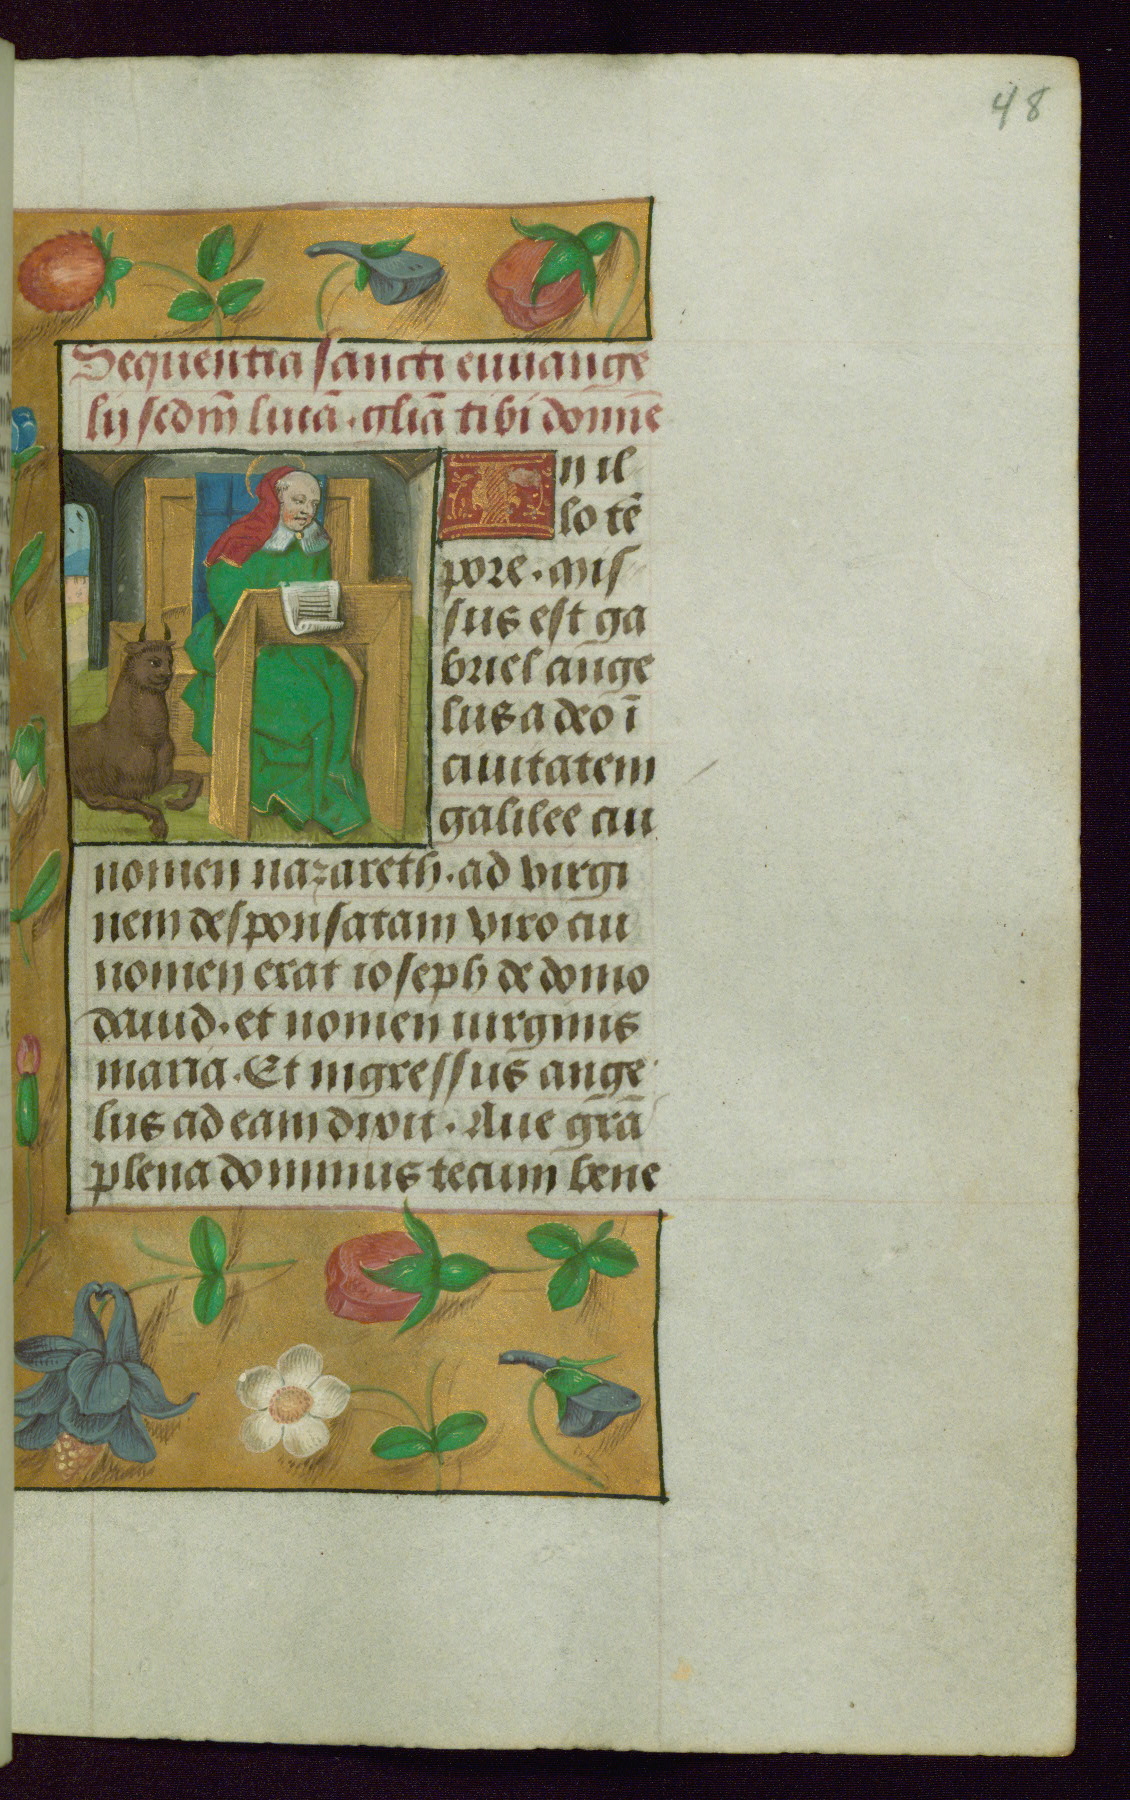 48
Sequentia sancti euuange
lij secdm̄ lucā. gliā tibi domnē
In il
lo tē
pore. mis
sus est ga
briel ange
lus a deo ī
ciuitatem
galilee cui
nomen nazareth. ad virgi
nem desponsatam viro cui
nomen erat ioseph de domo
dauid. et nomen uirginis
maria. Et ingressus ange
lus ad eam dixit. Aue grā
plena dominus tecum bene